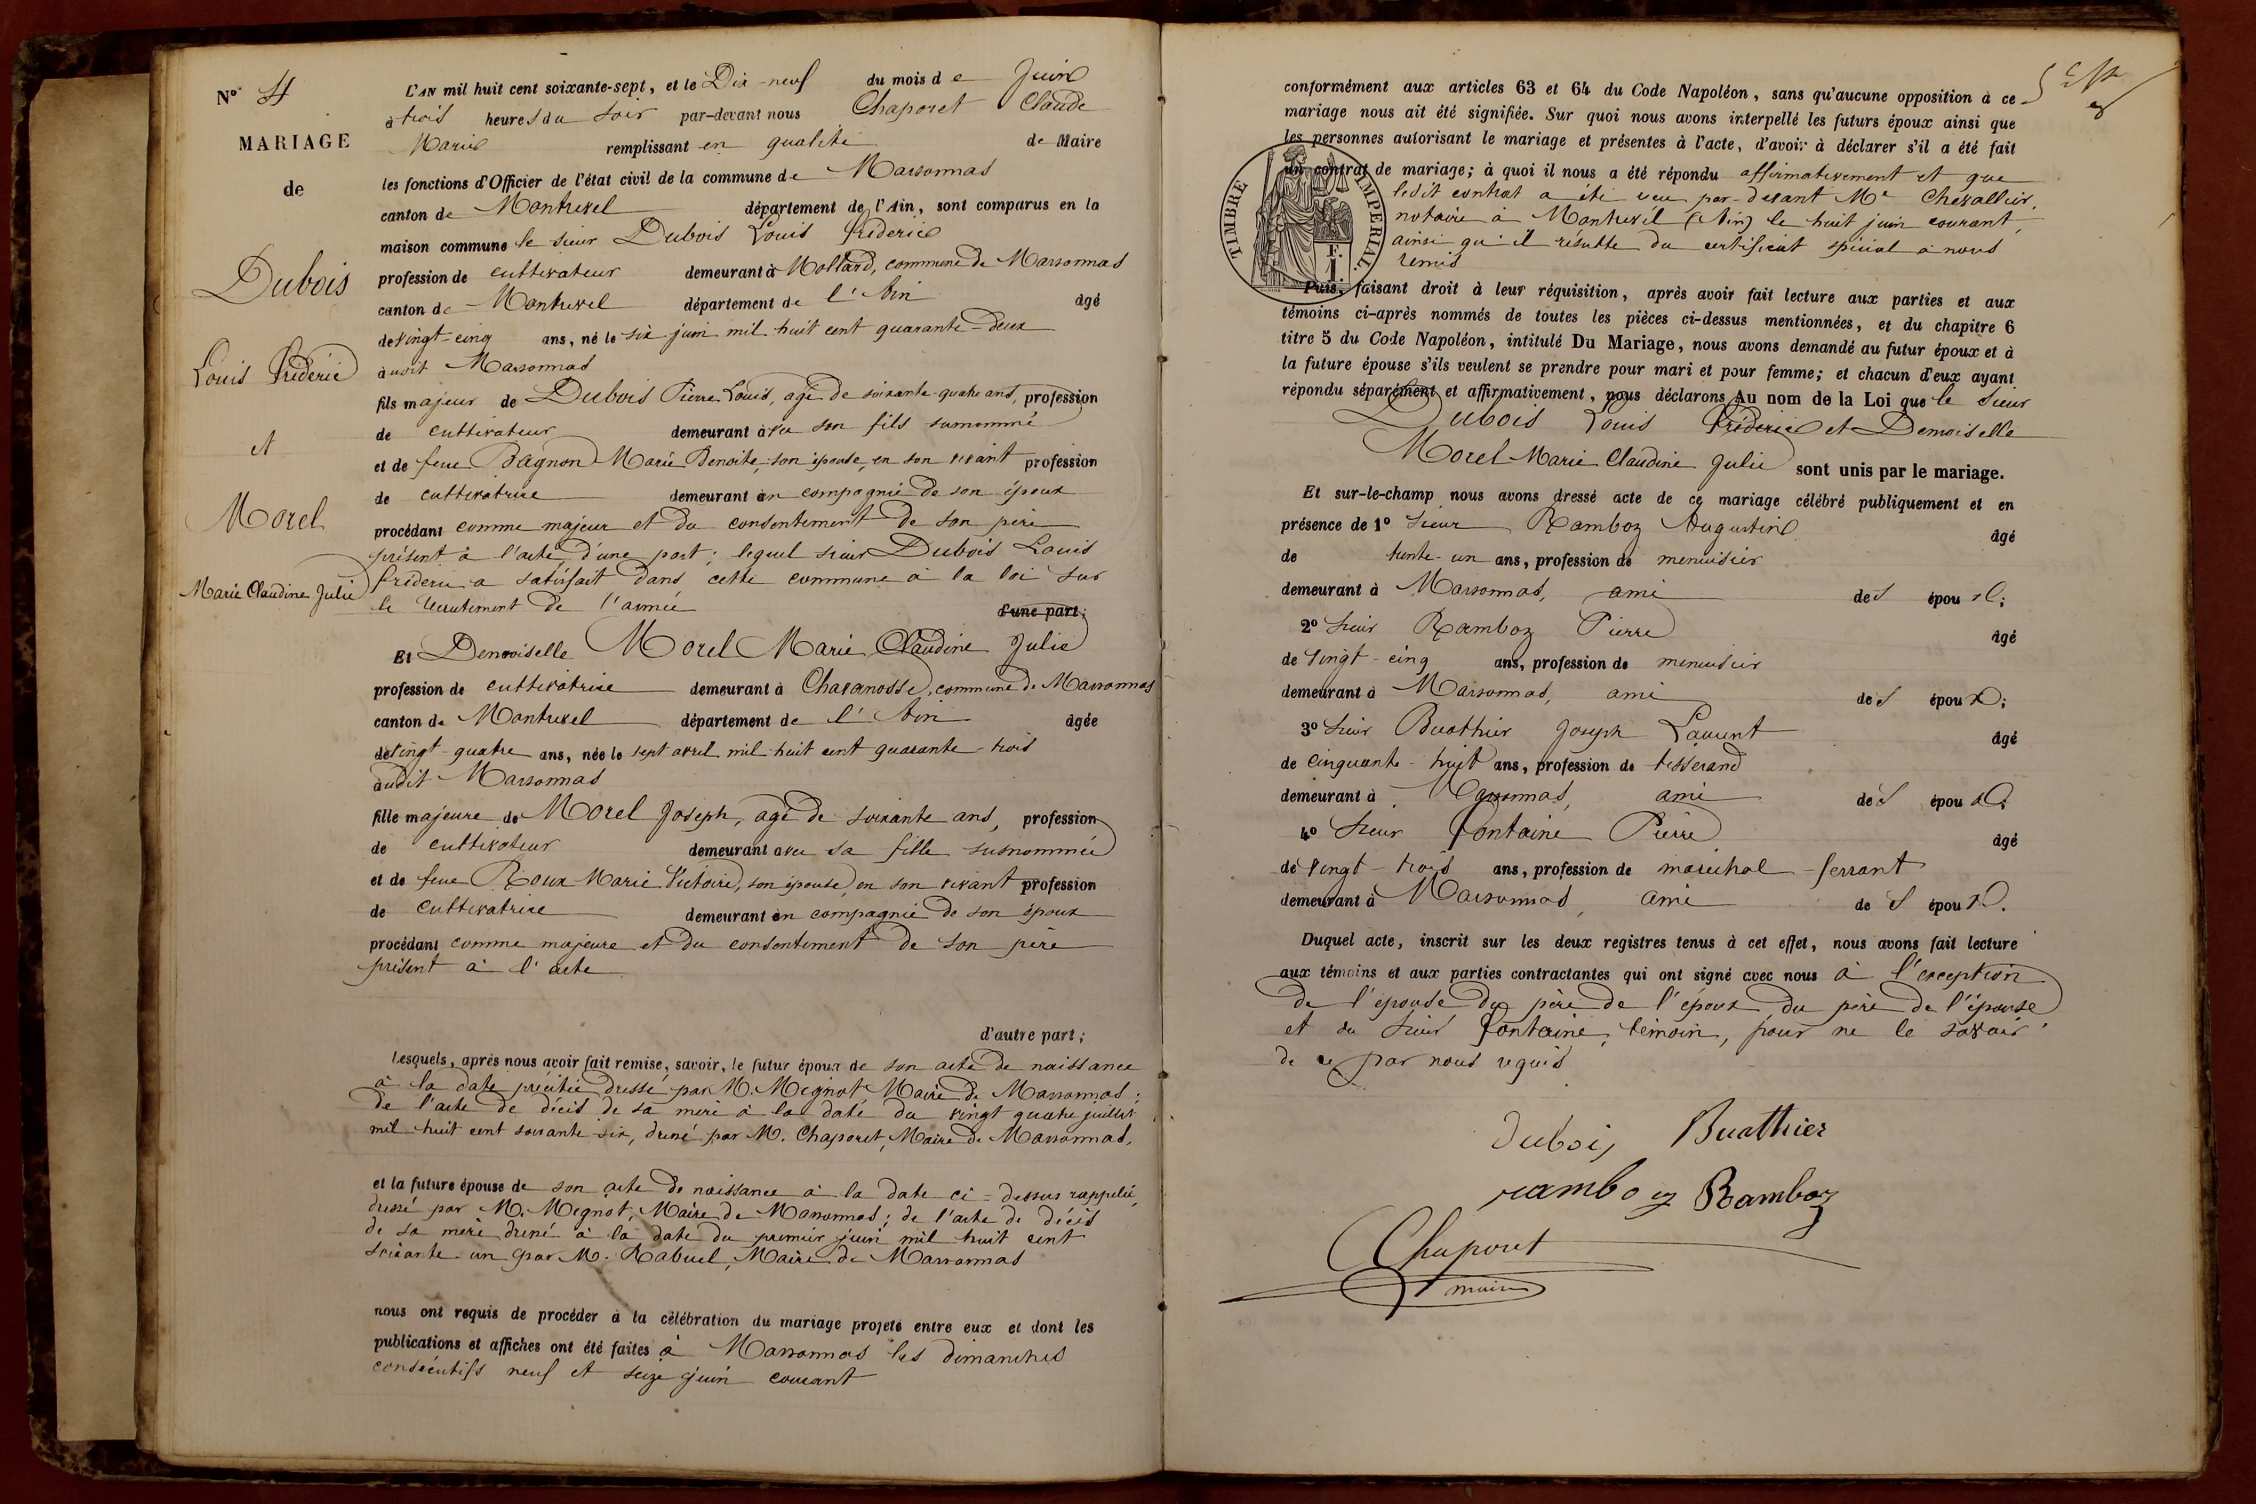 N° 4
MARIAGE
de
Dubois
Louis Frédéric
et
Morel
Marie Claudine Julie
L'AN mil huit cent soixante-sept, et le Dix-neuf du mois de Juin
à trois heures du soir par-devant nous Chaporet Claude
Marie remplissant en qualité de Maire
les fonctions d'Officier de l'état civil de la commune de Marsonnas
canton de Montrevel département de l'Ain, sont comparus en la
maison commune le sieur Dubois Louis Frédéric
profession de cultivateur demeurant à Mollard, commune de Marsonnas
canton de Montrevel département de l'Ain âgé
de vingt-cinq ans, né le six juin mil huit cent quarante-deux
audit Marsonnas
fils majeur de Dubois Pierre Louis, âgé de soixante-quatre ans, profession
de cultivateur demeurant avec son fils surnommé
et de feue Bagnon Marie Benoite, son épouse, en son vivant profession
de cultivatrice demeurant en compagnie de son époux
procédant comme majeur et du consentement de son père
présent à l'acte, d'une part; lequel sieur Dubois Louis
Frédéric a satisfait dans cette commune à la loi sur
le recrutement de l'armée d'une part;
Et Demoiselle Morel Marie Claudine Julie
profession de cultivatrice demeurant à Chavanosse, commune de Marsonnas
canton de Montrevel département de l'Ain âgée
de vingt-quatre ans, née le sept avril mil huit cent quarante-trois
audit Marsonnas
fille majeure de Morel Joseph, âgé de soixante ans, profession
de cultivateur demeurant avec sa fille susnommée
et de feue Roux Marie Victoire, son épouse, en son vivant profession
de cultivatrice demeurant en compagnie de son époux
procédant comme majeure et du consentement de son père
présent à l'acte
d'autre part;
Lesquels, après nous avoir fait remise, savoir, le futur époux de son acte de naissance
à la date précitée dressé par M. Mignot Maire de Marsonnas;
de l'acte de décès de sa mère à la date du vingt quatre juillet
mil huit cent soixante six, dressé par M. Chaporet, Maire de Marsonnas,
et la future épouse de son acte de naissance à la date ci-dessus rappelée,
dressé par M. Mignot, Maire de Marsonnas; de l'acte de décès
de sa mère dressé à la date du premier juin mil huit cent
soixante un par M. Rabuel, Maire de Marsonnas
nous ont requis de procéder à la célébration du mariage projeté entre eux et dont les
publications et affiches ont été faites à Marsonnas les dimanches
consécutifs neuf et seize juin courant
conformément aux articles 63 et 64 du Code Napoléon, sans qu'aucune opposition à ce
mariage nous ait été signifiée. Sur quoi nous avons interpellé les futurs époux ainsi que
les personnes autorisant le mariage et présentes à l'acte, d'avoir à déclarer s'il a été fait
un contrat de mariage; à quoi il nous a été répondu affirmativement et que
ledit contrat a été reçu par-devant Me Chevallier,
notaire à Montrevel (Ain) le huit juin courant,
ainsi qu'il résulte du certificat spécial à nous
remis
TIMBRE IMPERIAL.
F. 1.
Puis, faisant droit à leur réquisition, après avoir fait lecture aux parties et aux
témoins ci-après nommés de toutes les pièces ci-dessus mentionnées, et du chapitre 6
titre 5 du Code Napoléon, intitulé Du Mariage, nous avons demandé au futur époux et à
la future épouse s'ils veulent se prendre pour mari et pour femme; et chacun d'eux ayant
répondu séparément et affirmativement, nous déclarons Au nom de la Loi que le Sieur
Dubois Louis Frédéric et Demoiselle
Morel Marie Claudine Julie sont unis par le mariage.
Et sur-le-champ nous avons dressé acte de ce mariage célébré publiquement et en
présence de 1° Sieur Ramboz Augustin âgé
de trente-un ans, profession de menuisier
demeurant à Marsonnas, ami des époux;
2° Sieur Ramboz Pierre âgé
de vingt-cinq ans, profession de menuisier
demeurant à Marsonnas, ami des époux;
3° Sieur Buathier Joseph Laurent âgé
de cinquante-huit ans, profession de tisserand
demeurant à Marsonnas, ami des époux;
4° Sieur Fontaine Pierre âgé
de vingt-trois ans, profession de maréchal-ferrant
demeurant à Marsonnas, ami des époux.
Duquel acte, inscrit sur les deux registres tenus à cet effet, nous avons fait lecture
aux témoins et aux parties contractantes qui ont signé avec nous à l'exception
de l'épouse du père de l'époux du père de l'épouse
et du Sieur Fontaine, témoin, pour ne le savoir
de ce par nous requis
Dubois Buathier
ramboz Ramboz
Chaporet
maire